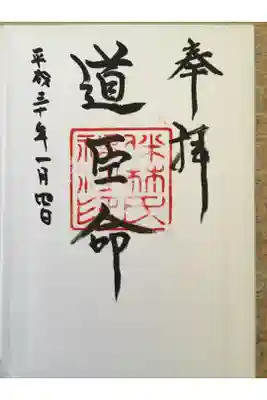 奉拝
道臣命
平成三十年一月四日